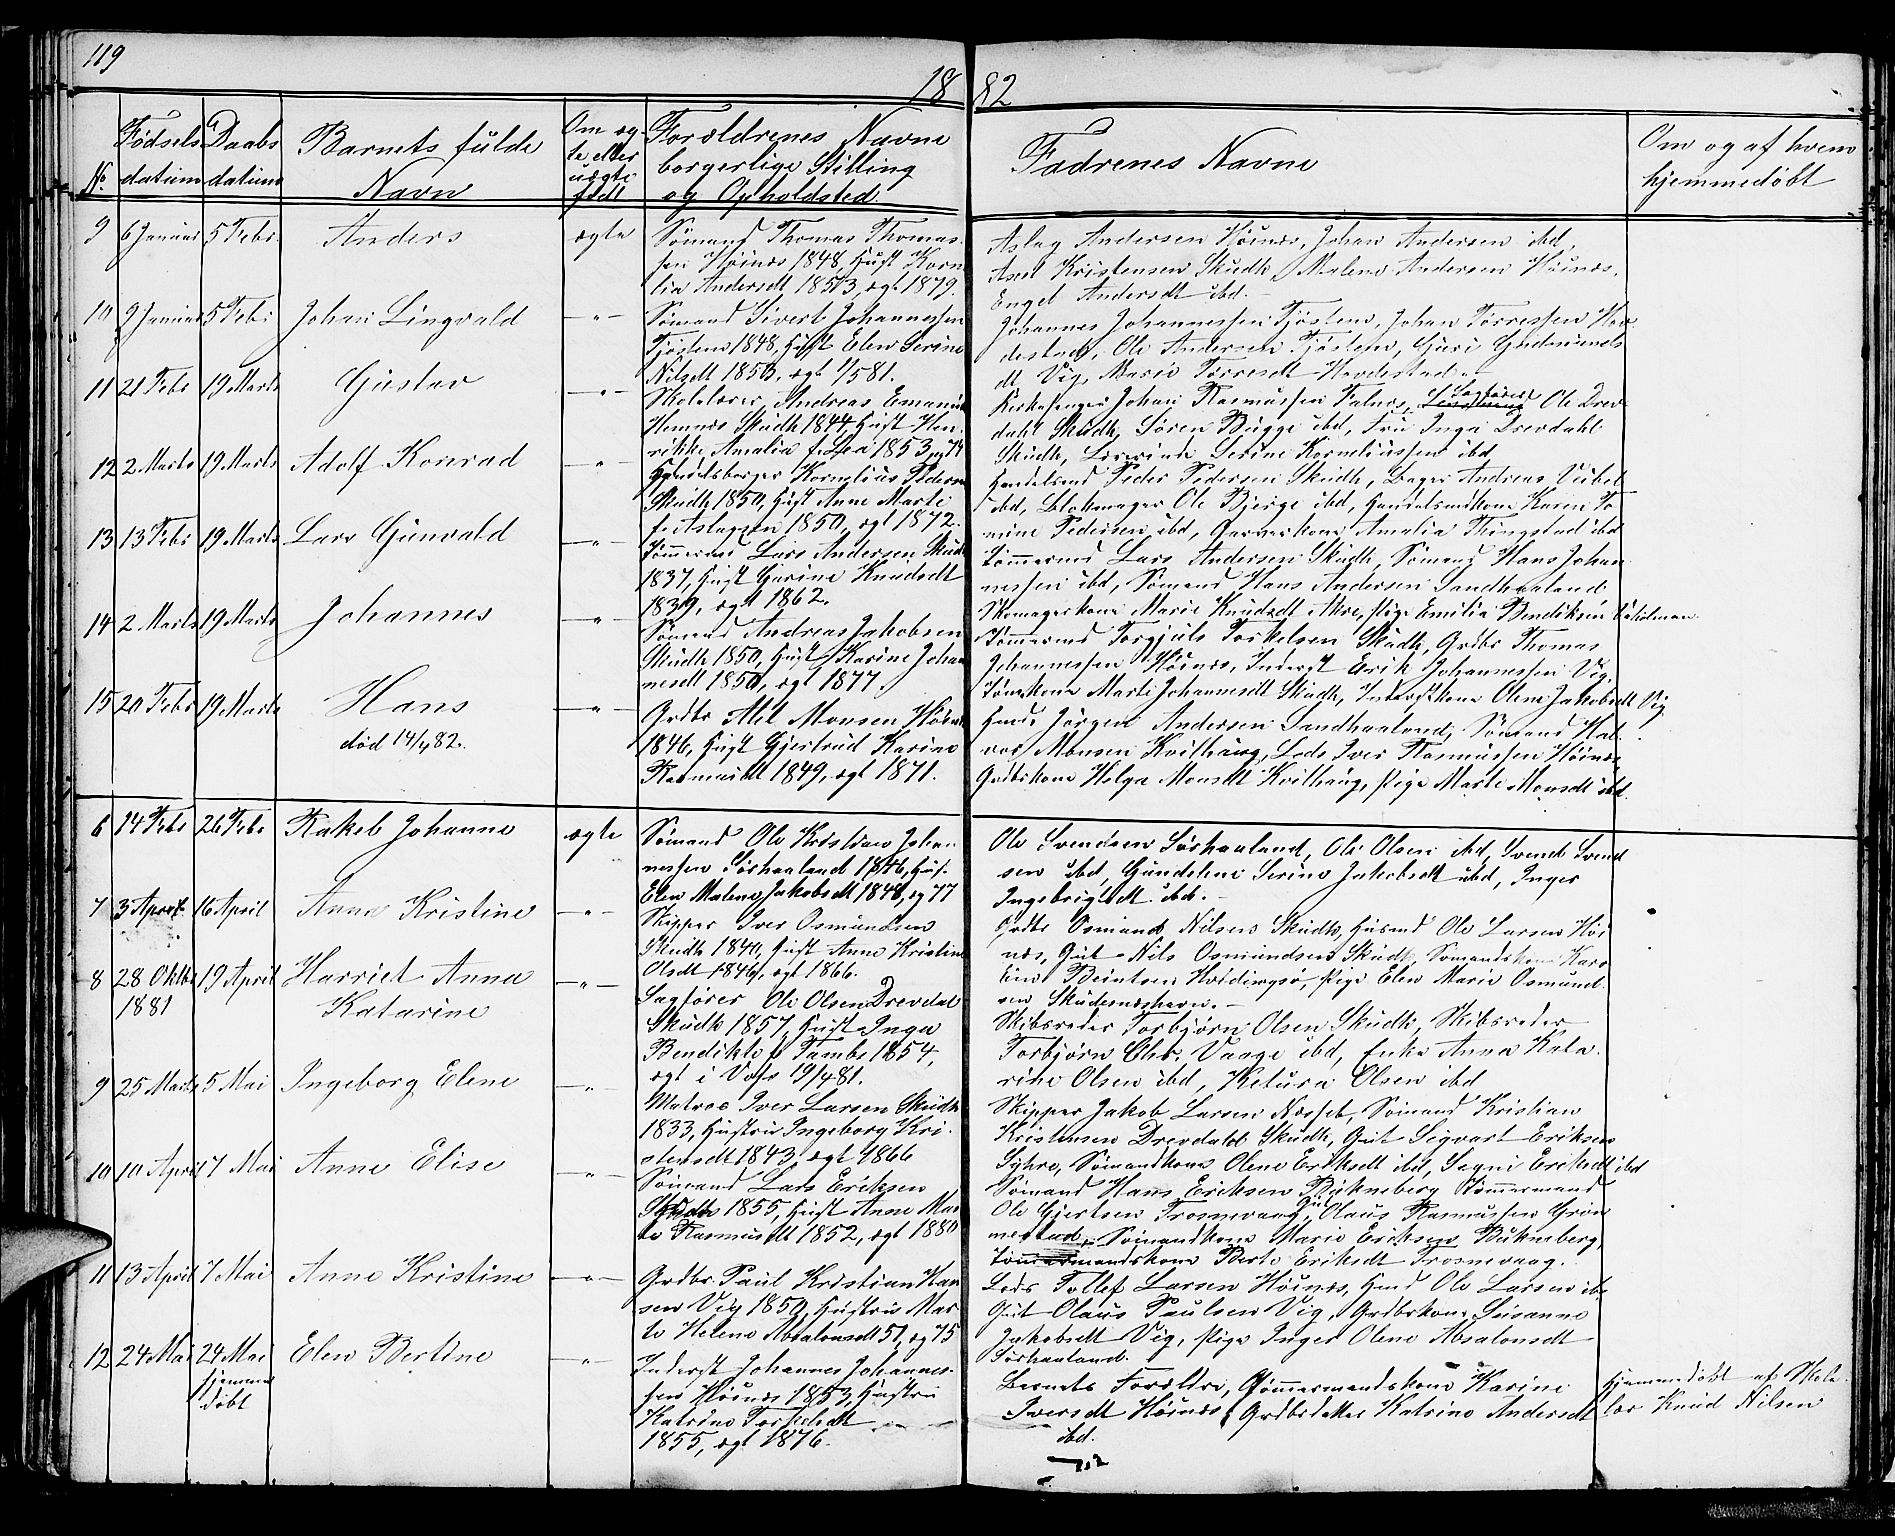 119
18 82
No. Fødsels datum Daabs datum Barnets fulde Navn Om æg te eller uægte født Forældrenes Navne borgerlige Stilling og Opholdsted. Fadrenes Navne Om og af hvem hjemmedøbt
9 6 Januar 5 Febr. Anders ægte Sømand Thomas Thomas-
sen Høinæs 1848, Hust. Korn
lia Andersdt 1853, ægt 1879.
Aslag Andersen Høinæs, Johan Andersen ibd,
Axel Kristensen Skudh, Malene Andersen Høinæs,
Engel Andersdt ibd.
10 9 Januar 5 Febr Johan Lingvald -"- Sømand Sivert Johannessen
Tjøsten 1848, Hust Elen Serine
Nilsdt 1853, ægt 1/5 81.
Johannes Johannessen Tjøsten, Johan Torressen Hov
destad, Ole Andersen Tjøsten, Guri Gudmunds
dt Vig, Marie Torresdt Hovdestad
11 21 Febr 19 Marts Gustav -"- Skolelærer Andreas Emanuel
Hemnæs Skudh 1844, Hust Hen-
rikke Amalia f. Lea 1853, æg 74
Kirkesanger Johan Rasmussen Falnæs, Sagfører Ole Drev
dahl Skudh, Søren Bugge ibd, Fru Inga Drevdahl
Skudh, Lærerinde Serine Korneliussen ibd,
12 2 Marts 19 Marts Adolf Konrad -"- Handelsborger Kornelius Peders
Skudh 1850, Hust Anne Marte
f. Aslagsen 1850, ægt 1872.
Handelsmd Peder Pedersen Skudh, Bager Andreas Veibel
ibd, Blokmager Ole Bjerge ibd, Handelsmdkone Karen To
mine Pedersen ibd, Garverkone Amalia Thingstad ibd
13 13 Febr 19 Marts Lars Gunvald -"- Tømmermd Lars Andersen Skudh
1837, Hust Gurine Knudsdt
1839, ægt 1862.
Tømmermd Lars Andersen Skudh, Sømand Hans Johan
nessen ibd, Sømand Hans Andersen Sandhaaland
Skomagerkone Marie Knudsdt Akre, Pige Emilia Bendiksen
14 2 Marts 19 Marts Johannes -"- Sømand Andreas Jakobsen
Skudh 1850, Hust Karine Johan
nesdt 1850, ægt 1877.
Tømmermd Torgjuls Torkelsen Skudh, Grdbr Thomas
Johannessen Høinæs, Inderst Erik Johannessen Vig,
Tømkone Marte Johannesdt Skudh, Inderstkone Olene Jakobsdt Vig
15 20 Febr 19 Marts Hans -"- Grdbr Mel Monsen Høinæs
død 14/4 82.
1846, Hust Gjertrud Karine
Rasmusdt 1849, ægt 1871.
Hmd Jørgen Andersen Sandhaaland, Sømand Hal
vor Monsen Kvilhaug, Lods Iver Rasmussen Høinæs
Grdbrkone Helga Monsdt Kvilhaug, Pige Marte Monsdt ibd.
6 14 Febr 26 Febr Rakel Johanne ægte Sømand Ole Kristian Johan-
nessen Sørhaaland 1846, Hus.
Elen Malene Jakobsdt 1848, æg 77
Ole Svendsen Sørhaaland, Ole Olsen ibd, Svend Svend
sen ibd, Gundeline Serine Jakobsdt ibd, Inger
Ingebrigtsdt ibd.
7 3 April 16 April Anna Kristine -"- Skipper Iver Osmundsen
Skudh 1840, Hust Anne Kristine
Olsdt 1846, ægt 1866.
Grdbr Osmund Nilsen Skudh, Husmd Ole Larsen Høi
næs, Gut Nils Osmundsen Skudh, Sømandskone Karo
line Beintsen Hvidingsø, Pige Elen Marie Osmund
sen Skudesnæshavn.
8 28 Oktbr 19 April Harriet Anna -"- Sagfører Ole Olsen Drevdal
1881 Katarine Skudh 1857, Hust Inga
Bendikte f Tambs 1854,
ægt i Voss 19/4 81.
Skibsreder Torbjørn Olsen Skudh, Skibsreder
Torbjørn Chr. Vaage ibd, Enke Anna Kata-
rine Olsen ibd, Ketura Olsen ibd
9 25 Marts 5 Mai Ingeborg Elene -"- Matros Iver Larsen Skudh
1833, Hustru Ingeborg Kri-
stensdt 1843, ægt 1866
Skipper Jakob Larsen Næsset, Sømand Kristian
Kristensen Drevdahl Skudh, Gut Sigvart Eriksen
Syhre, Sømandkone Olene Eriksdt ibd, Signi Eriksdt ibd
10 10 April 7 Mai Anne Elise -"- Sømand Lars Eriksen
Skudh 1855, Hust Anne Mar
te Rasmusdt 1852, ægt 1880
Sømand Hans Eriksen Bukneberg Tømmermand
Ole Gjertsen Trosnevaag, Gut Olaus Rasmussen Grøn
nestad, Sømandkone Marie Eriksen Bukneberg,
Tømmermandskone Berte Eriksdt Trosnevaag.
11 13 April 7 Mai Anne Kristine -"- Grdbr Paul Kristian Han
sen Vig 1850, Hustru Mar-
te Helene Absalonsdt 51, æg 75
Lods Tollef Larsen Høinæs, Hmd Ole Larsen ibd
Gut Olaus Paulsen Vig, Grdbrkone Susanne
Jakobsdt Vig, Pige Inger Olene Absalonsdt
Sørhaaland.
12 24 Mai 24 Mai Elen Bertine -"- Inderst Johannes Johannes-
hjemme
døbt
sen Høinæs 1853, Hustru
Katrine Torkelsdt
1855, ægt 1876.
Barnets Forældre, Tømmermandskone Karine
Iversdt Høinæs, Grdbrdatter Katrine Andersdt
ibd.
Hjemmedøbt af Skole
lær Knud Nilsen